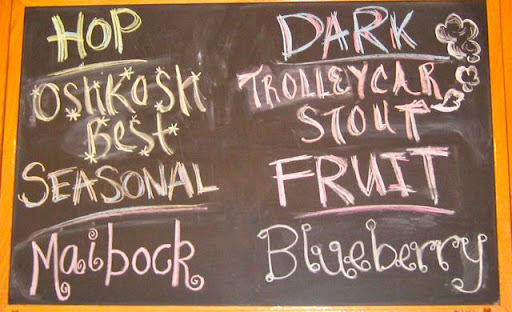 HOP
OSHKOSH
BEST
SEASONAL
Maibock
DARK
TROLLEYCAR
STOUT
FRUIT
Blueberry